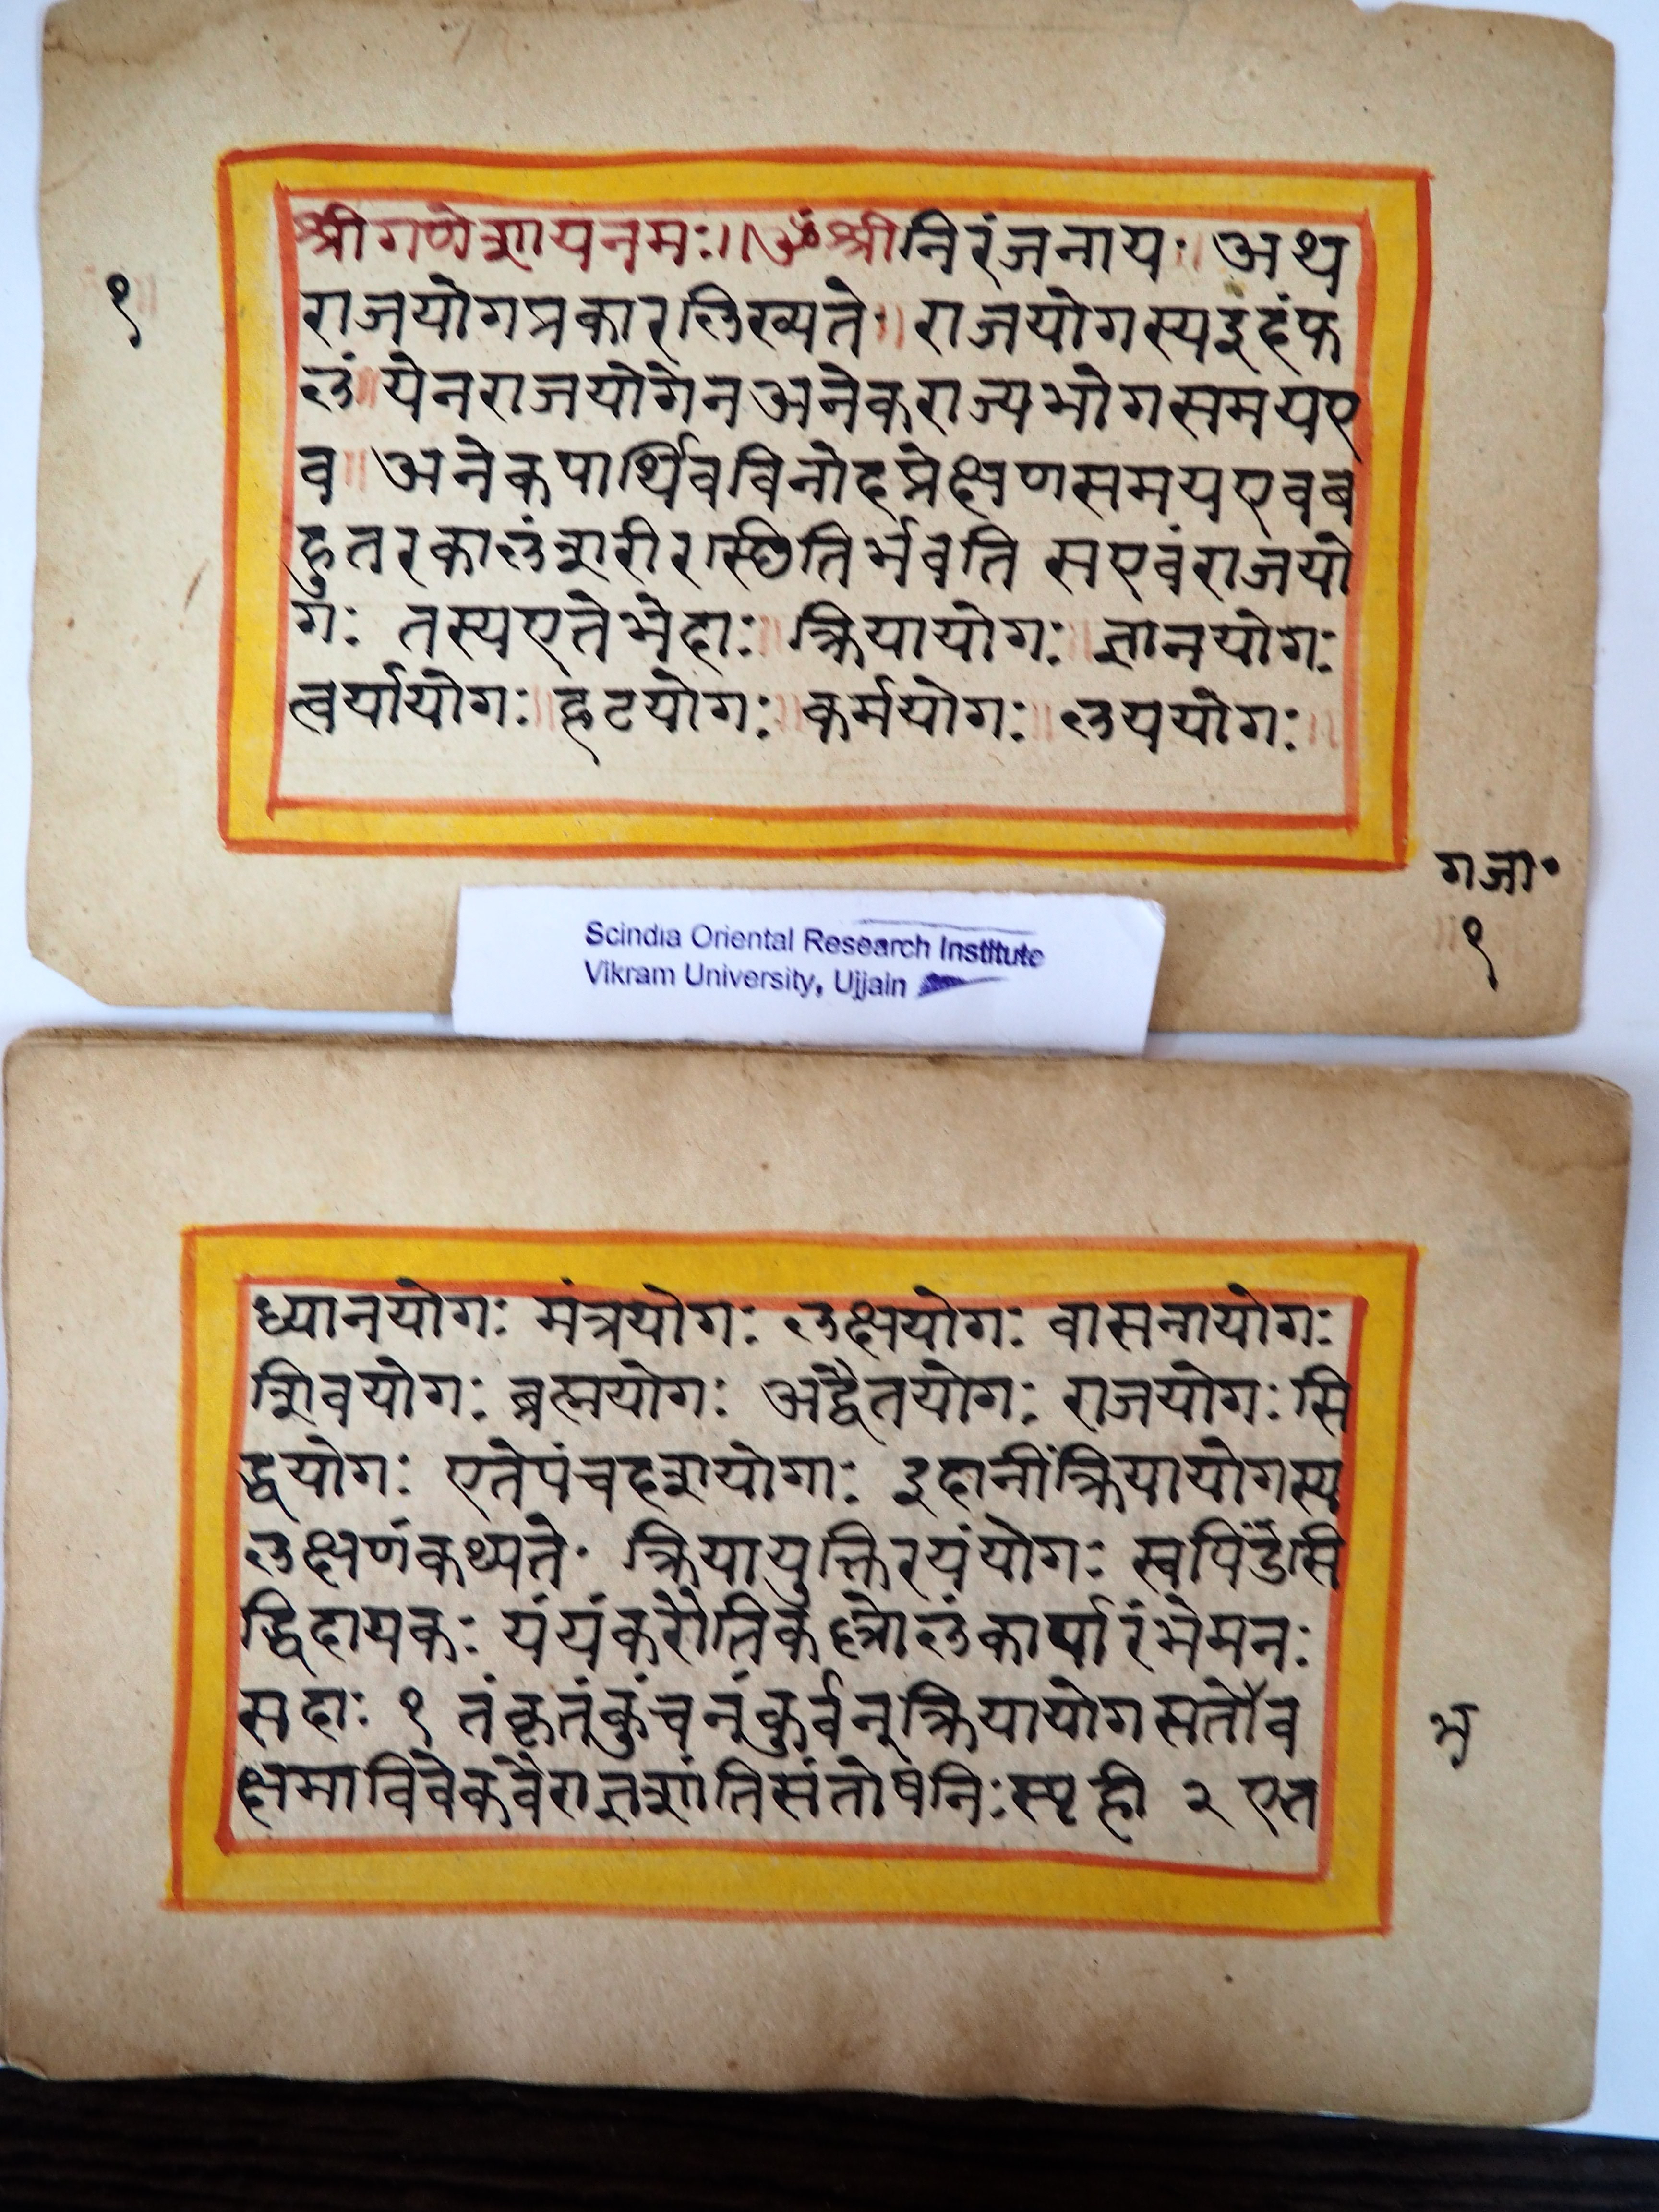 श्रीगणेशायनमः।।ॐश्रीनिरंजनाय॰।। अथ
१॥
राजयोगप्रकारलिख्यते॰॥ राजयोगस्यइंदंफ
लं॥येनराजयोगेनअनेकराज्यभोगसमयए
व॥अनेकपार्थिवविनोदप्रेक्षणसमयएवब
हुतरकालंशरीरास्छितिर्भवति सएवंराजयो
गः तस्यएतेभेदाः॥ क्रियायोगः॥ ज्ञानयोगः
त्वर्यायोगः॥ हटयोगः॥ कर्मयोगः॥ लययोगः॥
॥१
Scindia Oriental Research Institute
Vikram University, Ujjain
ध्यानयोगः मंत्रयोगः लक्षयोगः वासनायोगः
शिवयोगः ब्रह्मयोगः अद्वैतयोगः राजयोगः सि
द्धयोगः एतेपंचदशयोगाः इदानींक्रियायोगस्य
लक्षणंकथ्यते॰ क्रियायुक्तिरयंयोगः स्वपिंडेसि
द्धिदायकः यंयंकरोतिकल्लोलंकार्यारंभेमनः
सदाः १ तंकृतंकुंचनंकुर्वन्क्रियायोगसतोव
म
क्षमाविवेकवैराज्ञशांतिसंतोषनिःस्पृही २ एत